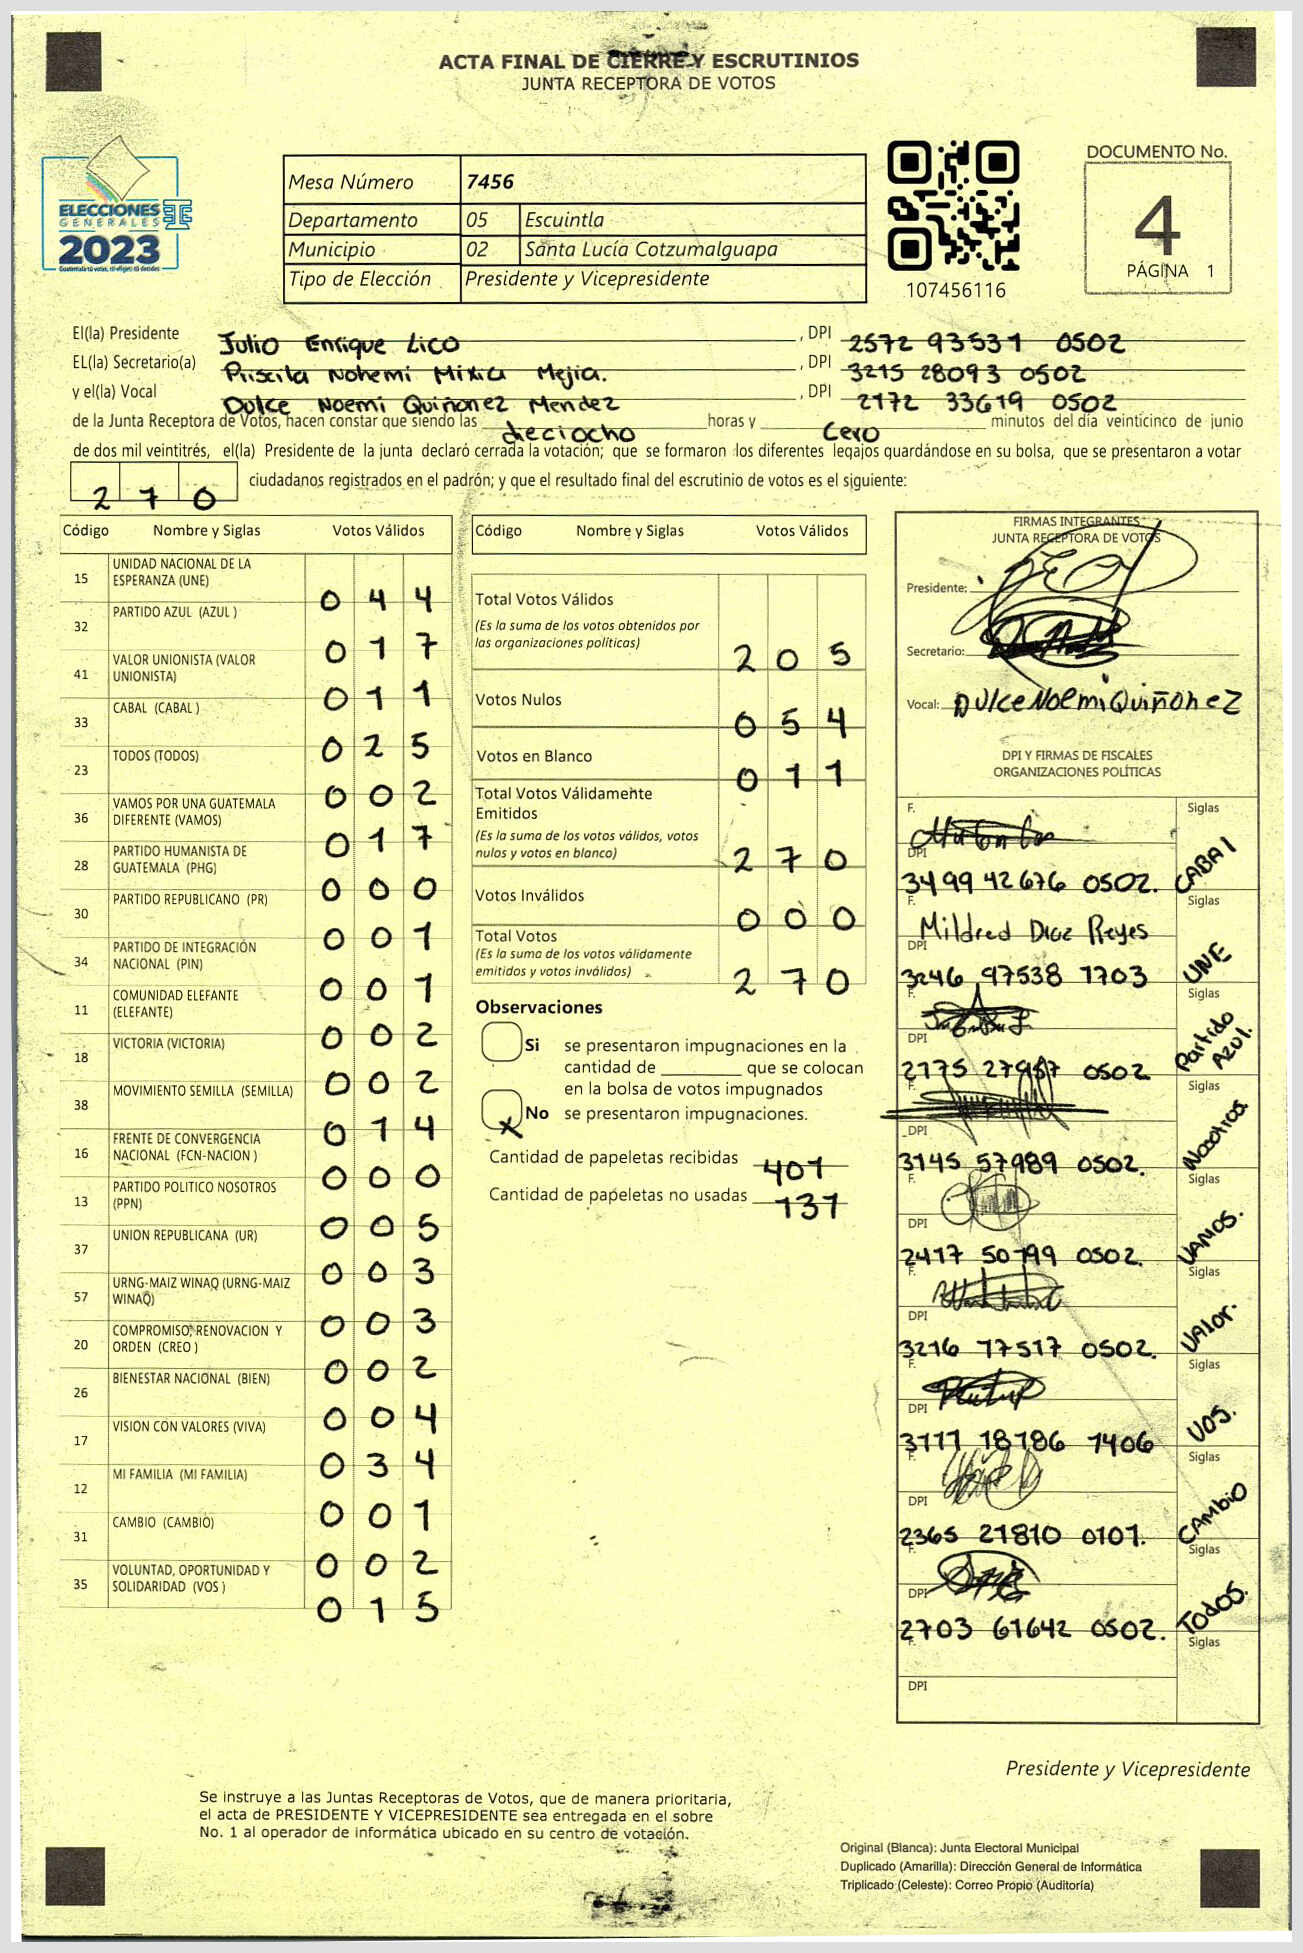 ACTA FINAL DE CIERRE Y ESCRUTINIOS
JUNTA RECEPTORA DE VOTOS
ELECCIONES
GENERALES
2023
Guatemala tú votas, tú eliges, tú decides
Mesa Número 7456
Departamento 05 Escuintla
Municipio 02 Santa Lucía Cotzumalguapa
Tipo de Elección Presidente y Vicepresidente
107456116
DOCUMENTO No.
4
PÁGINA 1
El(la) Presidente Julio Enrique Lico , DPI 2572 93531 0502
EL(la) Secretario(a) Priscila Nohemi Mixia Mejia. , DPI 3215 28093 0502
y el(la) Vocal Dulce Noemi Quiñonez Mendez , DPI 2172 33619 0502
de la Junta Receptora de Votos, hacen constar que siendo las dieciocho horas y cero minutos del día veinticinco de junio
de dos mil veintitrés, el(la) Presidente de la junta declaró cerrada la votación; que se formaron los diferentes legajos guardándose en su bolsa, que se presentaron a votar
270 ciudadanos registrados en el padrón; y que el resultado final del escrutinio de votos es el siguiente:
Código Nombre y Siglas Votos Válidos
15 UNIDAD NACIONAL DE LA ESPERANZA (UNE) 0 4 4
32 PARTIDO AZUL (AZUL ) 0 1 7
41 VALOR UNIONISTA (VALOR UNIONISTA) 0 1 1
33 CABAL (CABAL ) 0 2 5
23 TODOS (TODOS) 0 0 2
36 VAMOS POR UNA GUATEMALA DIFERENTE (VAMOS) 0 1 7
28 PARTIDO HUMANISTA DE GUATEMALA (PHG) 0 0 0
30 PARTIDO REPUBLICANO (PR) 0 0 1
34 PARTIDO DE INTEGRACIÓN NACIONAL (PIN) 0 0 1
11 COMUNIDAD ELEFANTE (ELEFANTE) 0 0 2
18 VICTORIA (VICTORIA) 0 0 2
38 MOVIMIENTO SEMILLA (SEMILLA) 0 1 4
16 FRENTE DE CONVERGENCIA NACIONAL (FCN-NACION ) 0 0 0
13 PARTIDO POLITICO NOSOTROS (PPN) 0 0 5
37 UNION REPUBLICANA (UR) 0 0 3
57 URNG-MAIZ WINAQ (URNG-MAIZ WINAQ) 0 0 3
20 COMPROMISO, RENOVACION Y ORDEN (CREO ) 0 0 2
26 BIENESTAR NACIONAL (BIEN) 0 0 4
17 VISION CON VALORES (VIVA) 0 3 4
12 MI FAMILIA (MI FAMILIA) 0 0 1
31 CAMBIO (CAMBIO) 0 0 2
35 VOLUNTAD, OPORTUNIDAD Y SOLIDARIDAD (VOS ) 0 1 5
Código Nombre y Siglas Votos Válidos
Total Votos Válidos
(Es la suma de los votos obtenidos por
las organizaciones políticas) 2 0 5
Votos Nulos 0 5 4
Votos en Blanco 0 1 1
Total Votos Válidamente
Emitidos
(Es la suma de los votos válidos, votos
nulos y votos en blanco) 2 7 0
Votos Inválidos 0 0 0
Total Votos
(Es la suma de los votos válidamente
emitidos y votos inválidos) 2 7 0
Observaciones
Si se presentaron impugnaciones en la
cantidad de ________ que se colocan
en la bolsa de votos impugnados
X No se presentaron impugnaciones.
Cantidad de papeletas recibidas 401
Cantidad de papeletas no usadas 131
FIRMAS INTEGRANTES
JUNTA RECEPTORA DE VOTOS
Presidente:
Secretario:
Vocal: Dulce Noemi Quiñonez
DPI Y FIRMAS DE FISCALES
ORGANIZACIONES POLÍTICAS
F. Siglas
DPI 3499 42676 0502. CABAL
F. Mildred Diaz Reyes Siglas
DPI 3246 97538 1703 UNE
F. Siglas
DPI 2775 27957 0502 Partido Azul.
F. Siglas
DPI 3145 57989 0502. Nosotros
Siglas
DPI 2417 50799 0502. VAMOS.
F. Siglas
DPI 3216 77517 0502. VALOR.
F. Siglas
DPI 3111 18186 1406 VOS.
F. Siglas
DPI 2365 21810 0101. CAMBIO
F. Siglas
DPI 2703 61642 0502. TODOS.
F. Siglas
DPI
Presidente y Vicepresidente
Se instruye a las Juntas Receptoras de Votos, que de manera prioritaria,
el acta de PRESIDENTE Y VICEPRESIDENTE sea entregada en el sobre
No. 1 al operador de informática ubicado en su centro de votación.
Original (Blanca): Junta Electoral Municipal
Duplicado (Amarilla): Dirección General de Informática
Triplicado (Celeste): Correo Propio (Auditoría)